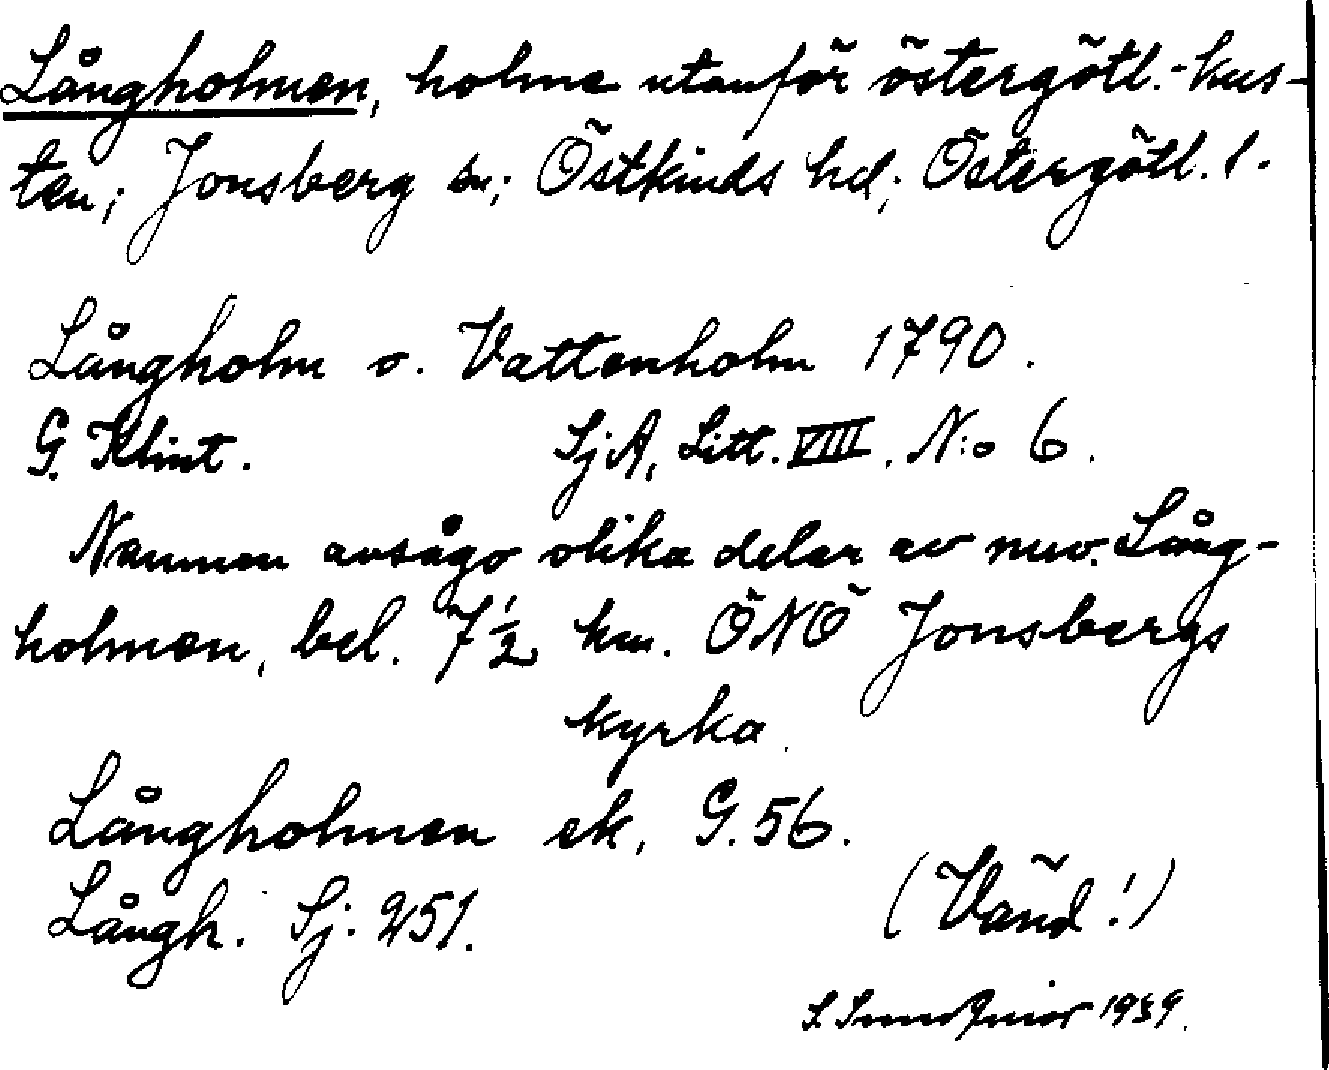 Långholmen, holme utanför östergötl.-kus-
ten; Jonsberg sn; Östkinds hd; Östergötl. l.
Långholm o. Vattenholm 1790.
G. Klint. SjA, Litt. VIII, N:o 6.
Namnen avsågo olika delar av nuv. Lång-
holmen, bel. 7½ km. ÖNÖ Jonsbergs
kyrka.
Långholmen ek. G. 56.
Långh. Sj. 251.
(Vänd!)
1939.